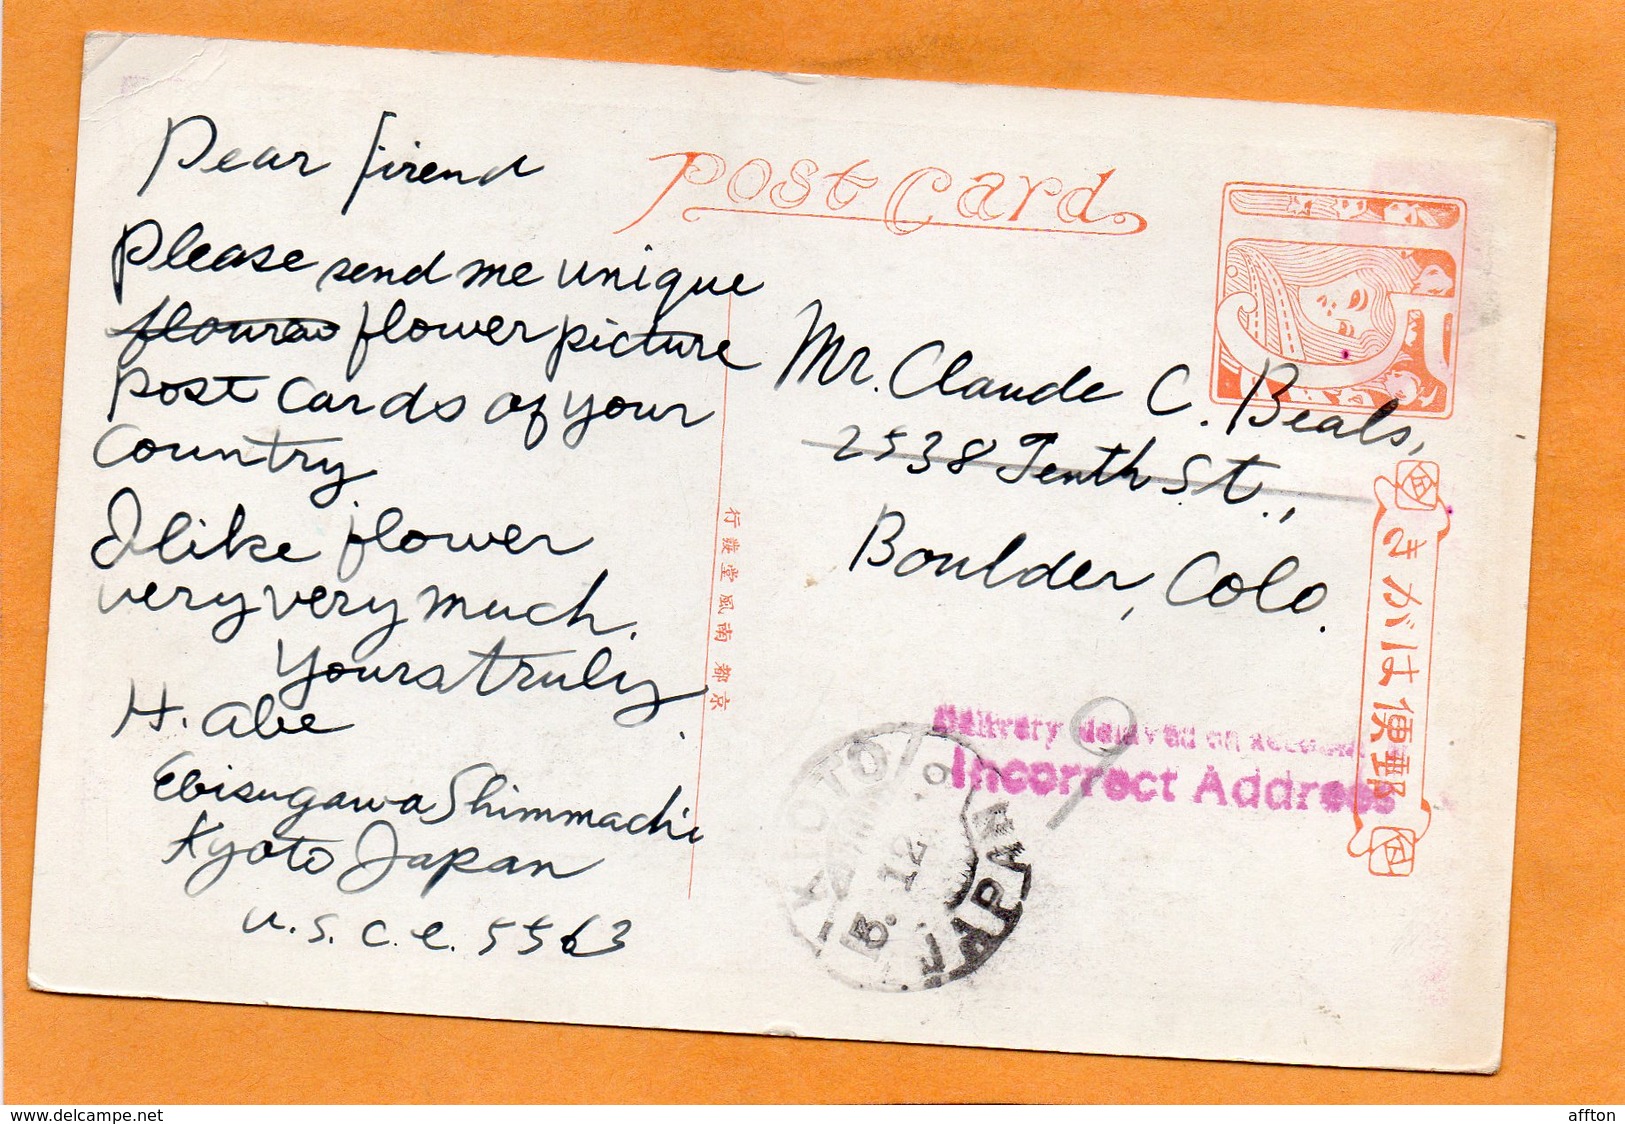 Dear firend
Please send me unique
flower picture
post cards of your
country
I like flower
very very much.
Yours truly
H. Abe
Ebisugawa Shimmachi
Kyoto Japan
U.S.C.C. 5563
Post Card
行發堂風南 都京
Mr. Claude C. Beals,
2538 Tenth St.,
Boulder, Colo.
きかは便郵
Delivery delayed on account
Incorrect Address
9
KYOTO
JAPAN
www.delcampe.net
affton